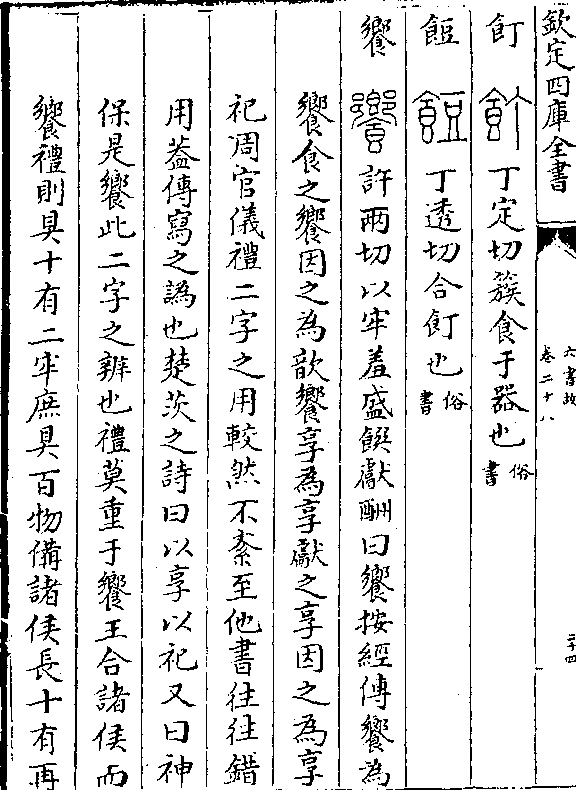 欽定四庫全書
六書故
卷二十八
二十四
飣 丁定切簇食于器也俗書
餖 丁透切合飣也俗書
饗 許兩切以牢羞盛饌獻酬曰饗按經傳饗為
饗食之饗因之為歆饗享為享獻之享因之為享
祀周官儀禮二字之用較然不紊至他書往往錯
用葢傳寫之譌也楚茨之詩曰以享以祀又曰神
保是饗此二字之辨也禮莫重于饗王合諸侯而
饗禮則具十有二牢庶具百物備諸侯長十有再